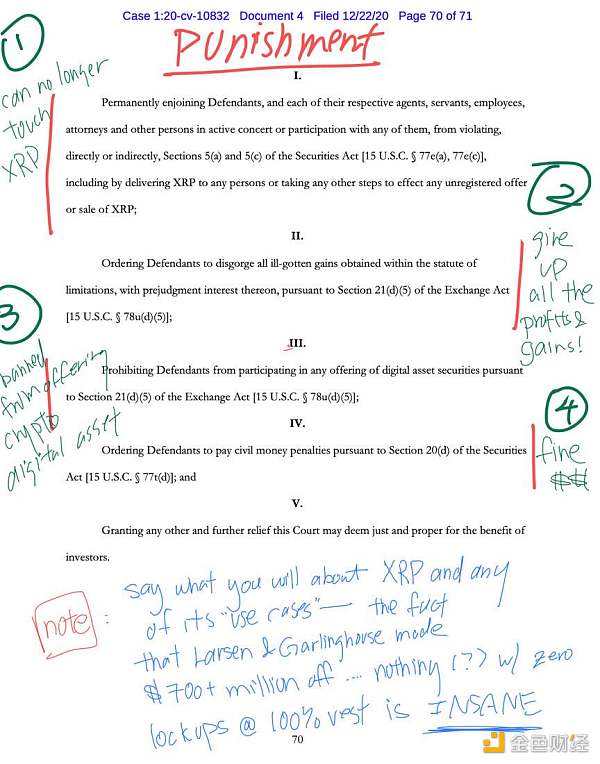 Case 1:20-cv-10832 Document 4 Filed 12/22/20 Page 70 of 71
Punishment
1
can no longer
touch
XRP
I.
Permanently enjoining Defendants, and each of their respective agents, servants, employees,
attorneys and other persons in active concert or participation with any of them, from violating,
directly or indirectly, Sections 5(a) and 5(c) of the Securities Act [15 U.S.C. § 77e(a), 77e(c)],
including by delivering XRP to any persons or taking any other steps to effect any unregistered offer
or sale of XRP;
2
give
up
all the
profits &
gains!
II.
Ordering Defendants to disgorge all ill-gotten gains obtained within the statute of
limitations, with prejudgment interest thereon, pursuant to Section 21(d)(5) of the Exchange Act
[15 U.S.C. § 78u(d)(5)];
3
banned
from offering
crypto
digital asset
III.
Prohibiting Defendants from participating in any offering of digital asset securities pursuant
to Section 21(d)(5) of the Exchange Act [15 U.S.C. § 78u(d)(5)];
4
fine
$$
IV.
Ordering Defendants to pay civil money penalties pursuant to Section 20(d) of the Securities
Act [15 U.S.C. § 77t(d)]; and
V.
Granting any other and further relief this Court may deem just and proper for the benefit of
investors.
note :
say what you will about XRP and any
of its "use cases" — the fact
that Larsen & Garlinghouse made
$700+ million off .... nothing (?) w/ zero
lockups @ 100% vest is INSANE
70
金色财经